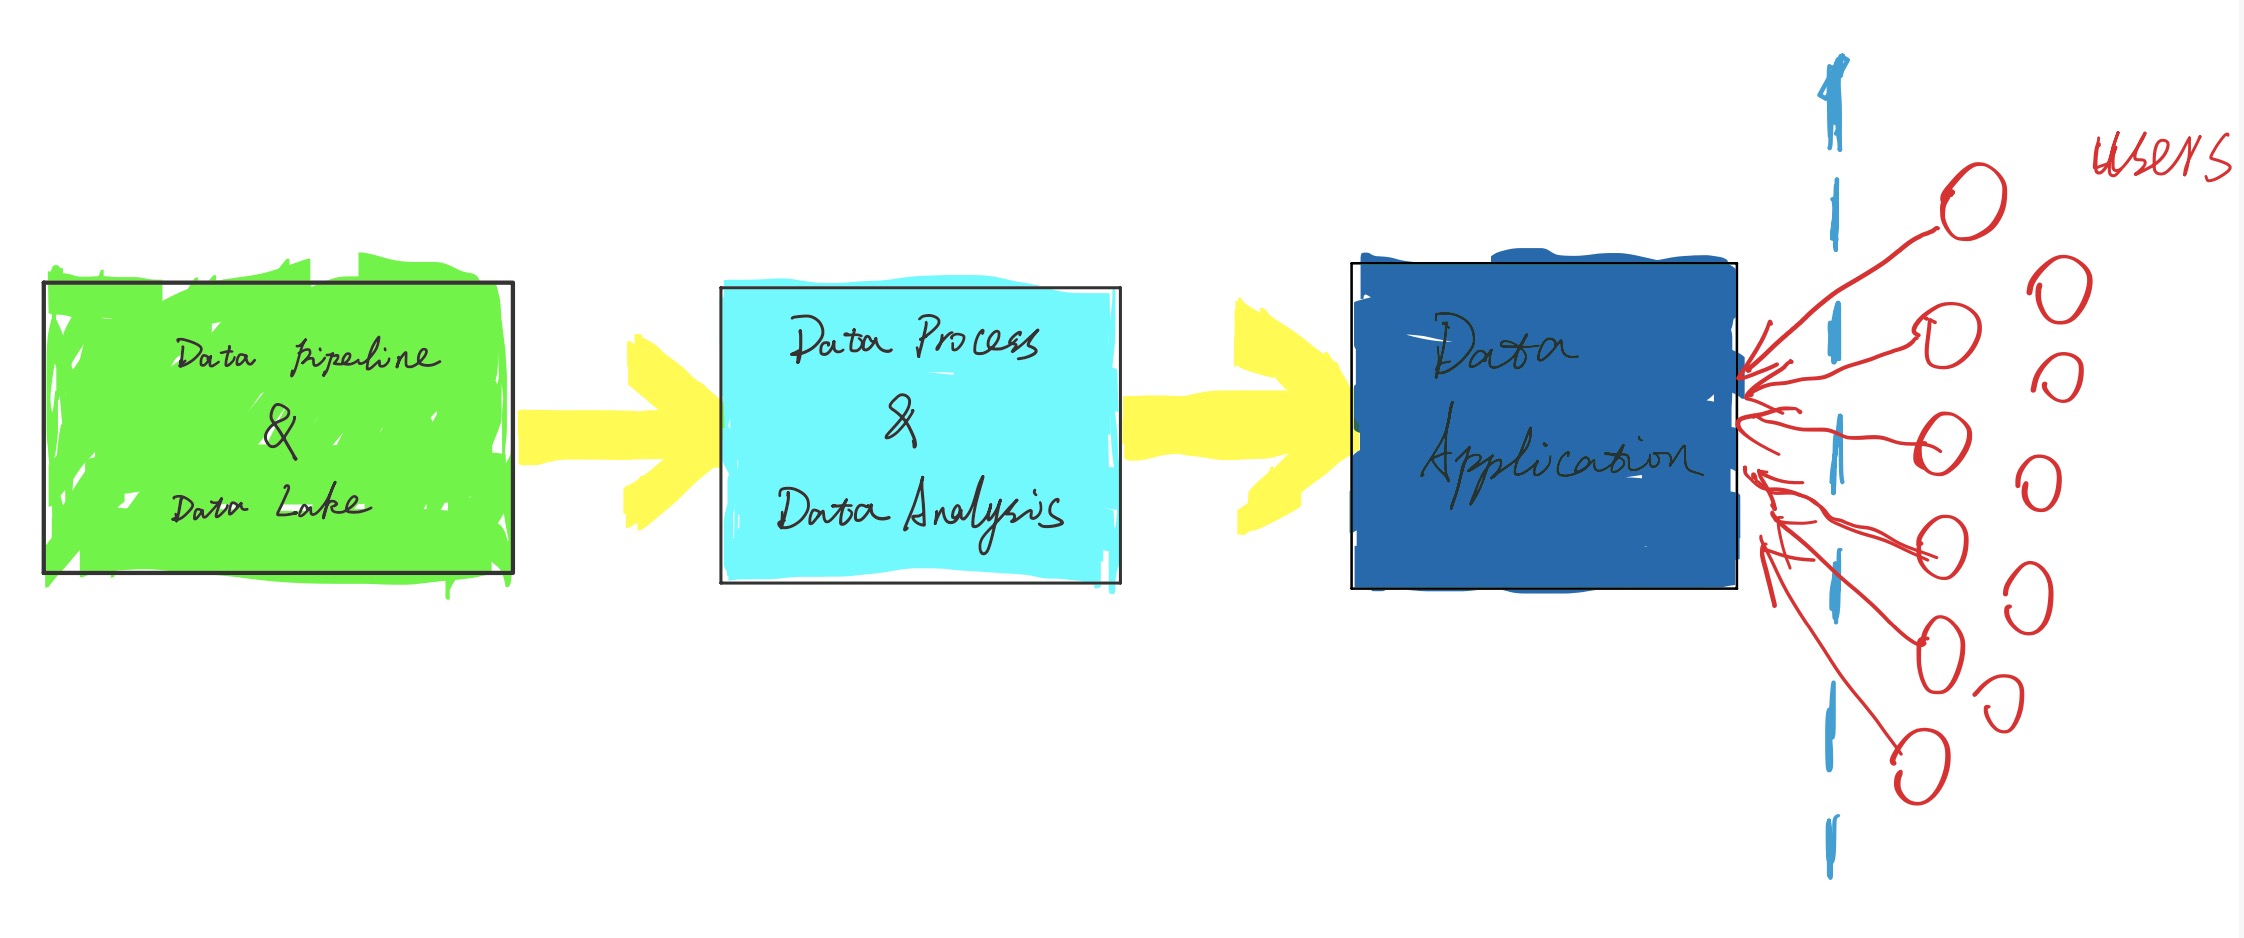 Data Pipeline
&
Data Lake
Data Process
&
Data Analysis
Data
Application
users